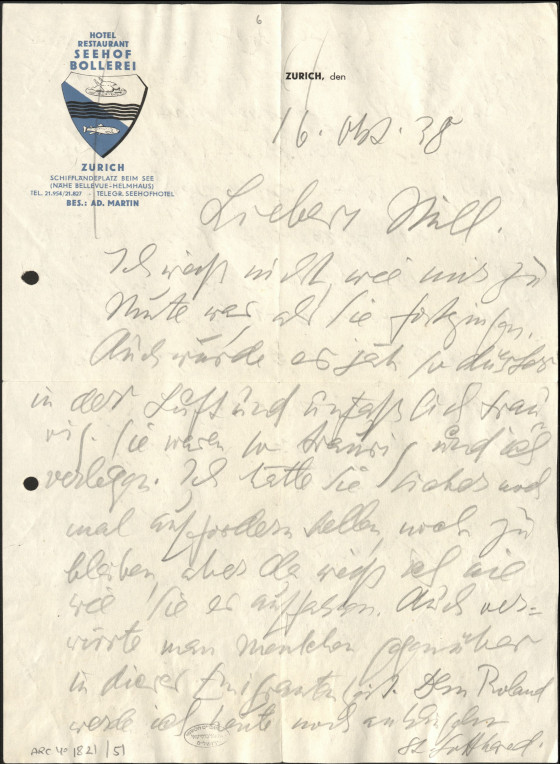 6
HOTEL
RESTAURANT
SEEHOF
BOLLEREI
ZURICH
SCHIFFLÄNDEPLATZ BEIM SEE
(NÄHE BELLEVUE-HELMHAUS)
TEL. 21.954/21.827 · TELEGR. SEEHOFHOTEL
BES.: AD. MARTIN
ZURICH, den
16. Okt. 38
Liebers Will.
Ich weiß nicht, wie mir zu
Mute war, als Sie fortgingen.
Auch wurde es jäh so düster
in der Luft und unfaßlich trau
rig. Sie waren so traurig und ich
verlegen. Ich hätte Sie sicher noch
mal auffordern sollen, noch zu
bleiben, aber da weiß ich nie
wie Sie es auffassen. Auch ver-
wirrte man Menschen gegenüber
in dieser Emigranten
Roland
werde ich heute noch
ARC 4° 1821 / 51